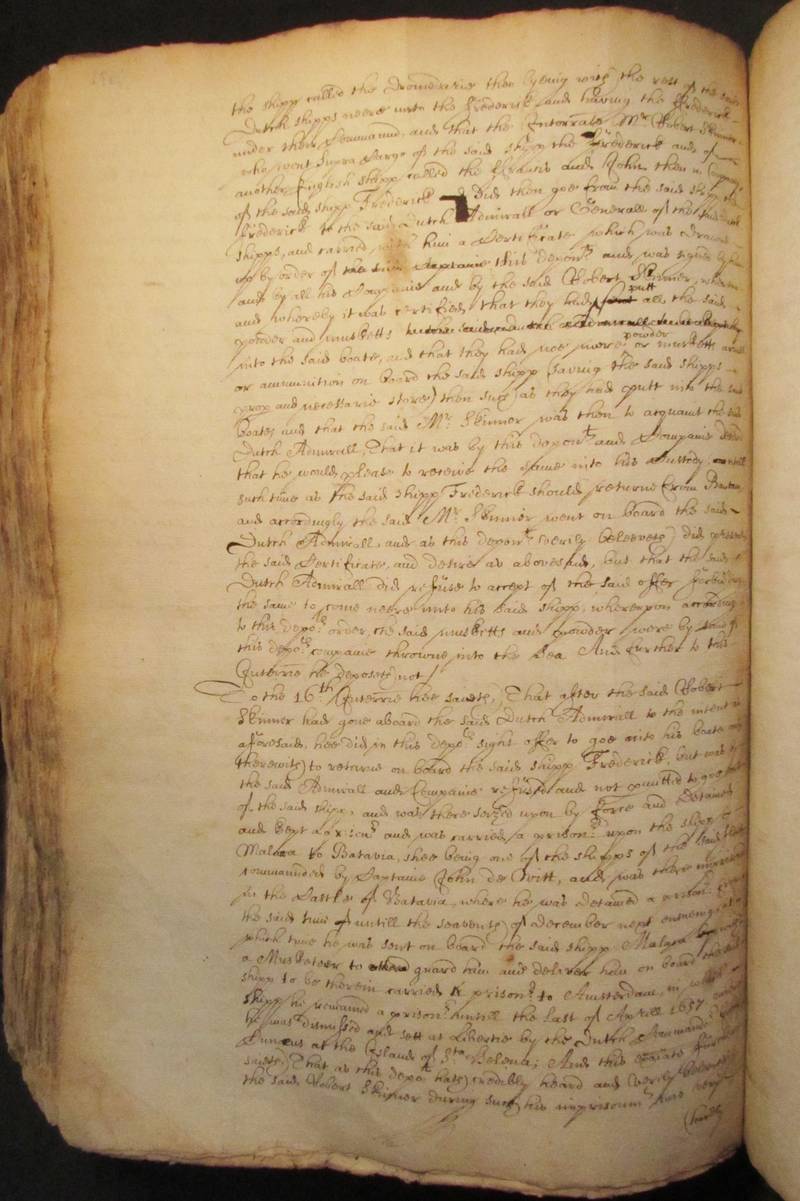 the shipp called the Dromidarie then lyeing with the rest of the said
Dutch shipps neere unto the Frederick and having the Frederick
under their Command, and that the Interrate Mr Robert Skinner
who went Supra Cargo of the said shipp the Frederick and of
another English shipp called the Francis and John then in Companie
of the said shipp Frederick Did then goe from the said shipp
Frederick to the said Dutch Admirall or Generall of the said
shipps, and carried with him a Certificate which was drawne
up by order of this depont and was signed by him
and by all his Companie and by the said Robert Skinner,
and whereby it was certified, that they had putt all the said
powder and musketts
into the said boate, and that they had noe more powder or musketts
or ammunition on board the said shipp (saving the said shipps
and necessarie stores) then such as they had putt into the said
boate, and that the said Mr Skinner was then to acquaint the said
Dutch Admirall, That it was by this depont and Companie desired
that he would please to receive the same into his Custody untill
such time as the said shipp Frederick should returne from Bantam
and accordingly the said Mr Skinner went on board the said
Dutch Admirall, and as this depont verily beleeveth did present
the said Certificate, and desire as abovesaid, but that the said
Dutch Admirall did refuse to accept of the said offer forbidding
the same to come neere unto his said shipp, whereupon according
to this depots order, the said musketts and powder were by some of
this depots companie throwne into the Sea And further to this
Interrie he deposeth not/
To the 16th Interrie hee saieth, That after the said Robert
Skinner had gone aboard the said Dutch Admirall to the intent
aforesaid, hee did in this depots sight offer to goe into his boate
therewith to returne on board the said shipp Frederick, but was by
the said Admirall and Companie refused and not permitted to goe
of the said shipp, and was there seized upon by force and detained
and kept a prisonr and was carried a prisonr upon the shipp
Malaca to Batavia, shee being one of the shipps of the said
commanded by Captaine John de Witt, and was there imprisoned
in the Castle of Batavia, where he was detained a prisonr from
the said time untill the seaventh of december next ensueing at
which time he was sent on board the said shipp Malaca
a Musketeer to guard him and deliver him on board the said
shipp to be therein carried a prisonr to Amsterdam, in which
shipp he remained a prisonr untill the last of Aprill 1657
he was dismissed and sett at Libertie by the Dutch Commander
at the Island of Sta Helena; And this
saieth That as this depot hath credibly heard and verily beleeveth
the said Robert Skinner during such his imprisonmt was very
(hardly